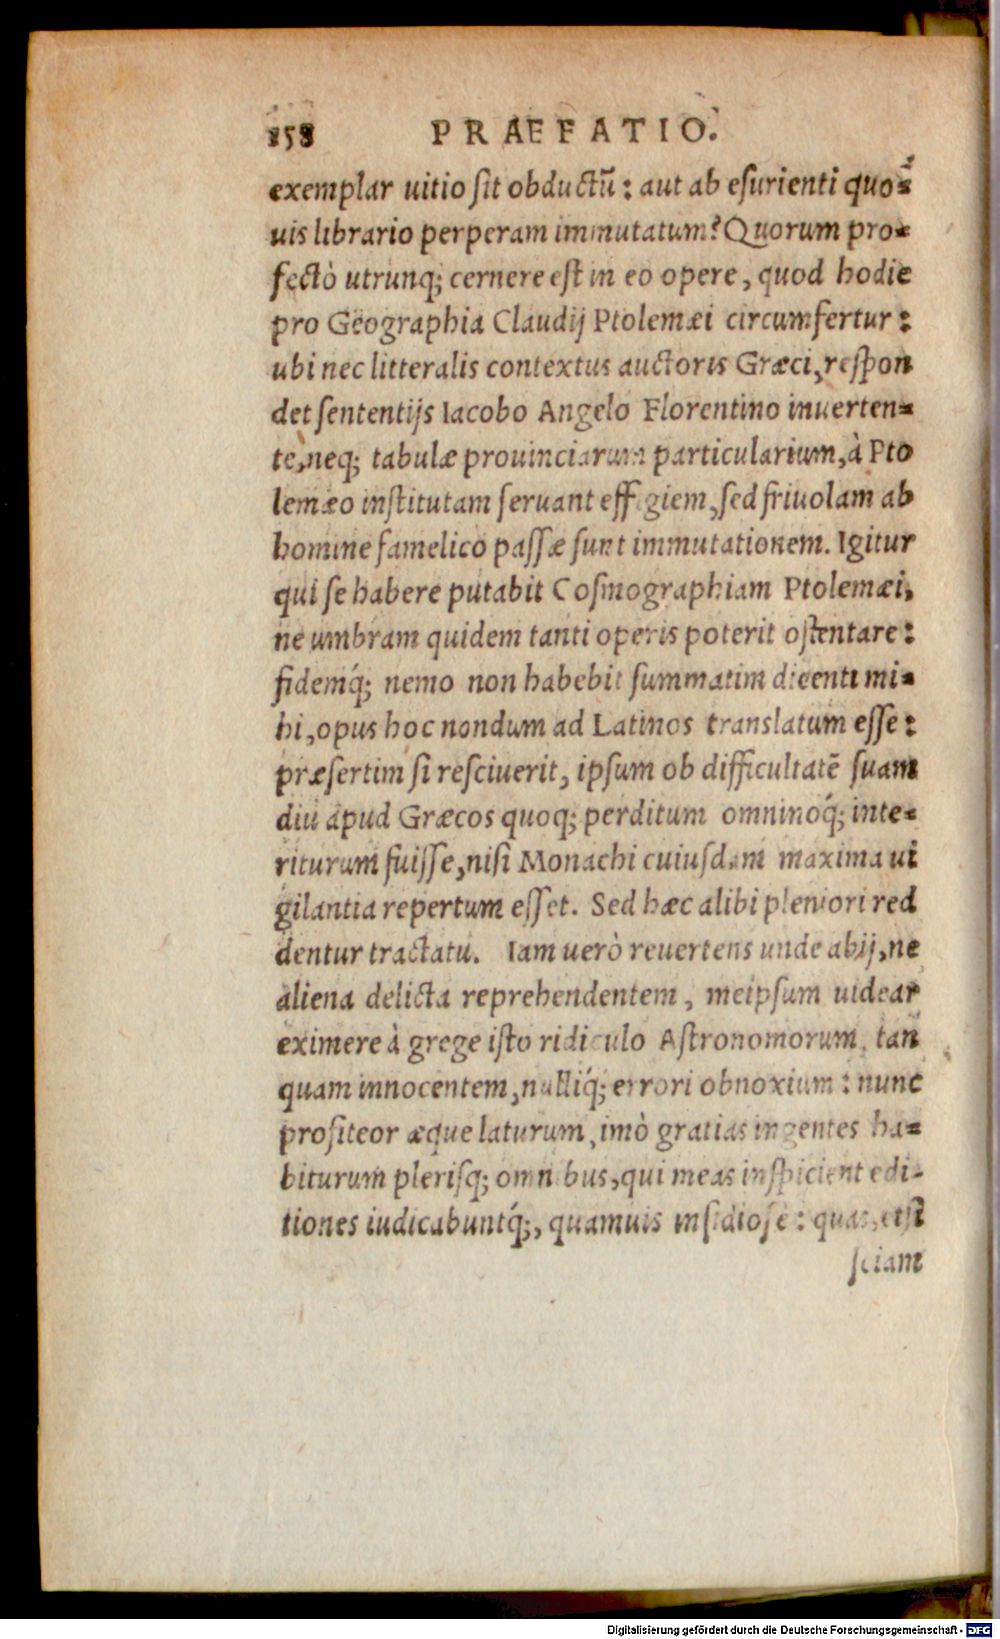 158 PRAEFATIO.
exemplar uitio sit obductũ: aut ab esurienti quo-
uis librario perperam immutatum? Quorum pro-
fectò utrunq; cernere est in eo opere, quod hodie
pro Geographia Claudij Ptolemæi circumfertur:
ubi nec litteralis contextus auctoris Græci, respon
det sententijs Iacobo Angelo Florentino inuerten-
te, neq; tabulæ prouinciarum particularium, à Pto
lemæo institutam seruant effigiem, sed friuolam ab
homine famelico passæ sunt immutationem. Igitur
qui se habere putabit Cosmographiam Ptolemæi,
ne umbram quidem tanti operis poterit ostentare:
fidemq́; nemo non habebit summatim dicenti mi-
hi, opus hoc nondum ad Latinos translatum esse:
præsertim si resciuerit, ipsum ob difficultatẽ suam
diu apud Græcos quoq; perditum omninoq́; inte-
riturum fuisse, nisi Monachi cuiusdam maxima ui
gilantia repertum esset. Sed hæc alibi pleniori red
dentur tractatu. Iam uerò reuertens unde abij, ne
aliena delicta reprehendentem, meipsum uidear
eximere à grege isto ridiculo Astronomorum, tan
quam innocentem, nulliq́; errori obnoxium: nunc
profiteor æque laturum, imò gratias ingentes ha-
biturum plerisq; omnibus, qui meas inspicient edi-
tiones iudicabuntq́;, quamuis insidiose: quas, etsi
sciam
Digitalisierung gefördert durch die Deutsche Forschungsgemeinschaft - DFG